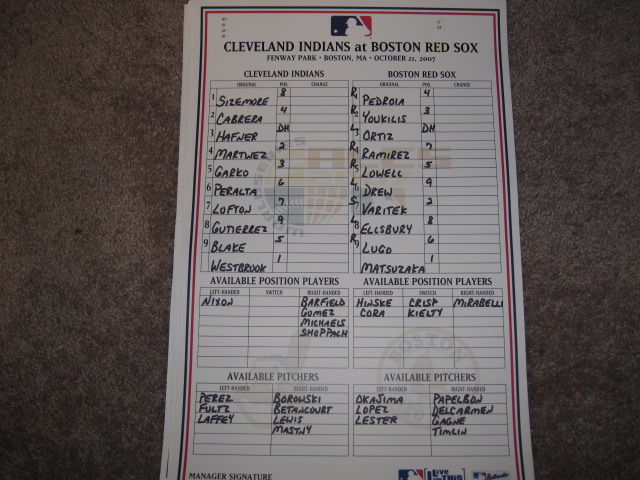 CLEVELAND INDIANS at BOSTON RED SOX
FENWAY PARK • BOSTON, MA • OCTOBER 21, 2007
CLEVELAND INDIANS
ORIGINAL POS. CHANGE
1 SIZEMORE 8
2 CABRERA 4
3 HAFNER DH
4 MARTINEZ 2
5 GARKO 3
6 PERALTA 6
7 LOFTON 7
8 GUTIERREZ 9
9 BLAKE 5
WESTBROOK 1
BOSTON RED SOX
ORIGINAL POS. CHANGE
R 1 PEDROIA 4
R 2 YOUKILIS 3
L 3 ORTIZ DH
R 4 RAMIREZ 7
R 5 LOWELL 5
L 6 DREW 9
S 7 VARITEK 2
L 8 ELLSBURY 8
R 9 LUGO 6
MATSUZAKA 1
AVAILABLE POSITION PLAYERS
LEFT-HANDED SWITCH RIGHT-HANDED
NIXON BARFIELD
GOMEZ
MICHAELS
SHOPPACH
AVAILABLE POSITION PLAYERS
LEFT-HANDED SWITCH RIGHT-HANDED
HINSKE CRISP MIRABELLI
CORA KIELTY
AVAILABLE PITCHERS
LEFT-HANDED RIGHT-HANDED
PEREZ BOROWSKI
FULTZ BETANCOURT
LAFFEY LEWIS
MASTNY
AVAILABLE PITCHERS
LEFT-HANDED RIGHT-HANDED
OKAJIMA PAPELBON
LOPEZ DELCARMEN
LESTER GAGNE
TIMLIN
MANAGER SIGNATURE